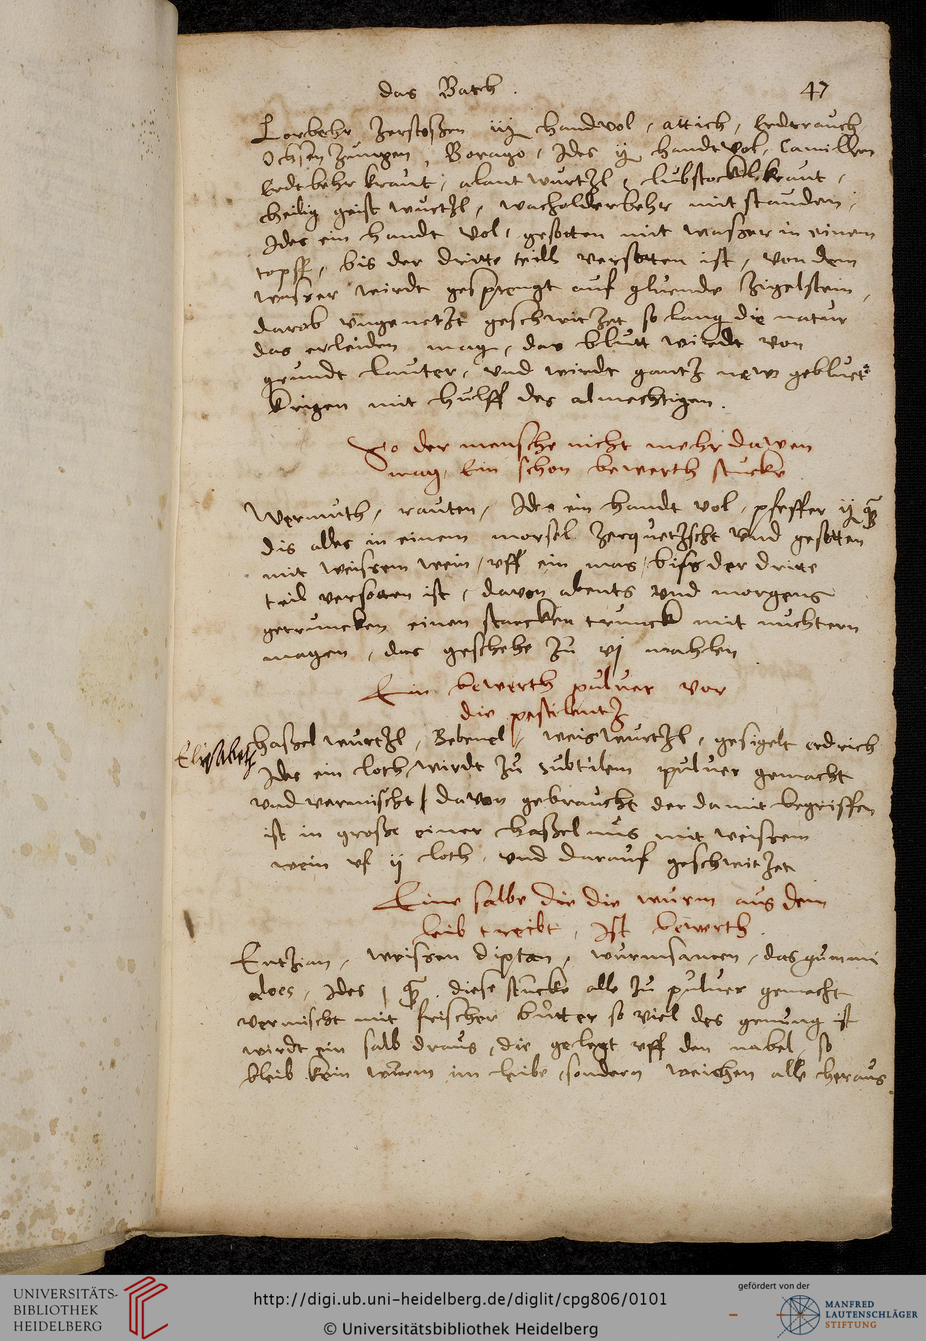 das Bach .
47
Lorbehr Zerstoßen iij handvol, attich, Erdtrauch
Ochsen Zungen, Borago, Ides ij handtvol, Camillen
Erdtbehr kraut, alant wurtzl, lubstockelkraut,
heilig geist wurtzl, wacholderbehr mit stauden,
Ides ein handt vol, gesotten mit waßer in einem
topff, bis der dritte teill versotten ist, von dem
waßer wirdt gesprengt auf gluende Zigelstein,
darob vngenetzt geschwitzet so lang die natur
das erleiden mag, das blutt wirdt von
grundt lauter, vnd wirdt gantz new gebluet
krigen mit hulff des almechtigen.
So der mensche nicht mehr dawen
mag, Ein schon bewerth stucke
Wermuth, rauten, Ides ein handt vol, pfeffer ij
dis alles in einem morsel Zerquetzscht vnd gesotten
mit weissem wein, vff ein mas, biss der dritte
teil versotten ist, davon abents vnd morgens
getruncken einen starcken trunck mit nuchtern
magen, das geschehe zu vj mahlen
Ein bewerth puluer vor
die pestilentz
Elisabeth
haßelwurtzl, Bebenel, weiswurtzl, gesigelt erdrich
Ides ein loth, wirdt zu subtilem puluer gemacht
vnd vermischt, davon gebraucht der damit begriffen
ist in große einer haßelnus mit weissem
wein vf ij loth, vnd darauf geschwitzet
Eine salbe die die wurm aus dem
leib treibt, ist bewerth.
Entzian, weissen diptan, wurmsamen, das gummi
aloes, Ides j diese stucke alle zu puluer gemacht
vermischt mit frischer butter so viel des genung ist
wirdt ein salb draus, die gelegt vff den nabel, so
bleib kein wurm im leibe, sondern weichen alle heraus
UNIVERSITÄTS-
BIBLIOTHEK
HEIDELBERG
http://digi.ub.uni-heidelberg.de/diglit/cpg806/0101
© Universitätsbibliothek Heidelberg
gefördert von der
MANFRED
LAUTENSCHLÄGER
STIFTUNG